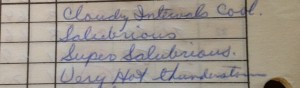 Cloudy Intervals Cool.
Salubrious
Super Salubrious.
Very Hot thunderstorm